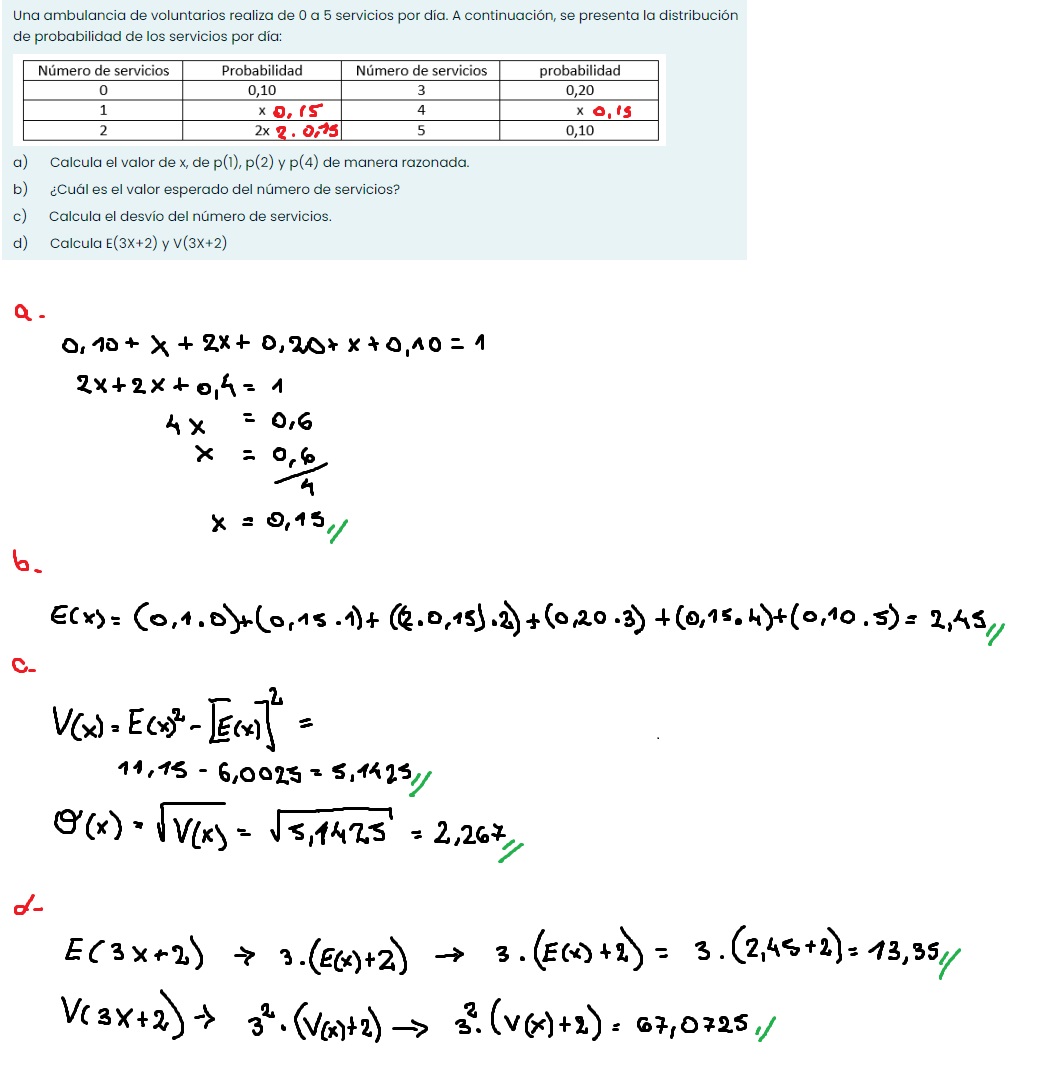 Una ambulancia de voluntarios realiza de 0 a 5 servicios por día. A continuación, se presenta la distribución
de probabilidad de los servicios por día:
Número de servicios Probabilidad Número de servicios probabilidad
0 0,10 3 0,20
1 x 0,15 4 x 0,15
2 2x 2.0,15 5 0,10
a) Calcula el valor de x, de p(1), p(2) y p(4) de manera razonada.
b) ¿Cuál es el valor esperado del número de servicios?
c) Calcula el desvío del número de servicios.
d) Calcula E(3X+2) y V(3X+2)
a.
0,10 + x + 2x + 0,20 + x + 0,10 = 1
2x + 2x + 0,4 = 1
4x = 0,6
x = 0,6/4
x = 0,15//
b.
E(x) = (0,1.0)+(0,15.1)+((2.0,15).2)+(0,20.3)+(0,15.4)+(0,10.5) = 2,45//
c-
V(x) = E(x)² - [E(x)]² =
11,15 - 6,0025 = 5,1425//
σ(x) = √V(x) = √5,1425 = 2,267//
d-
E(3x+2) → 3.(E(x)+2) → 3.(E(x)+2) = 3.(2,45+2) = 13,35//
V(3x+2) → 3².(V(x)+2) → 3².(V(x)+2) = 67,0725//